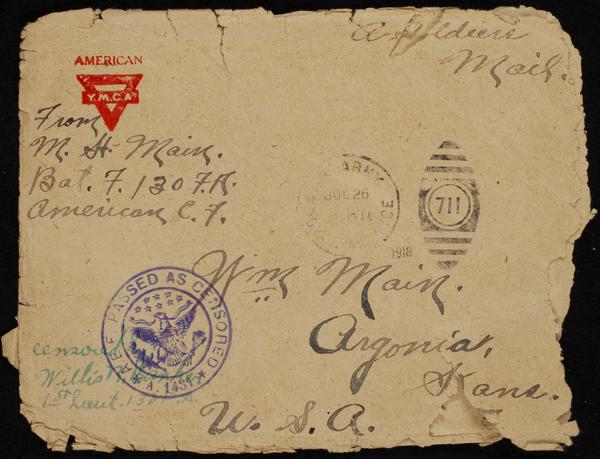 A Soldiers
Mail.
AMERICAN
Y.M.C.A.
From
M. H. Main.
Bat. F. 130 F.A.
American E. F.
ARMY
JUL 26
1918
711
Wm Main.
Argonia,
Kans.
U. S. A.
A.E.F. PASSED AS CENSORED
A. 1431
censored
Willis
1st Lieut. 130 F.A.